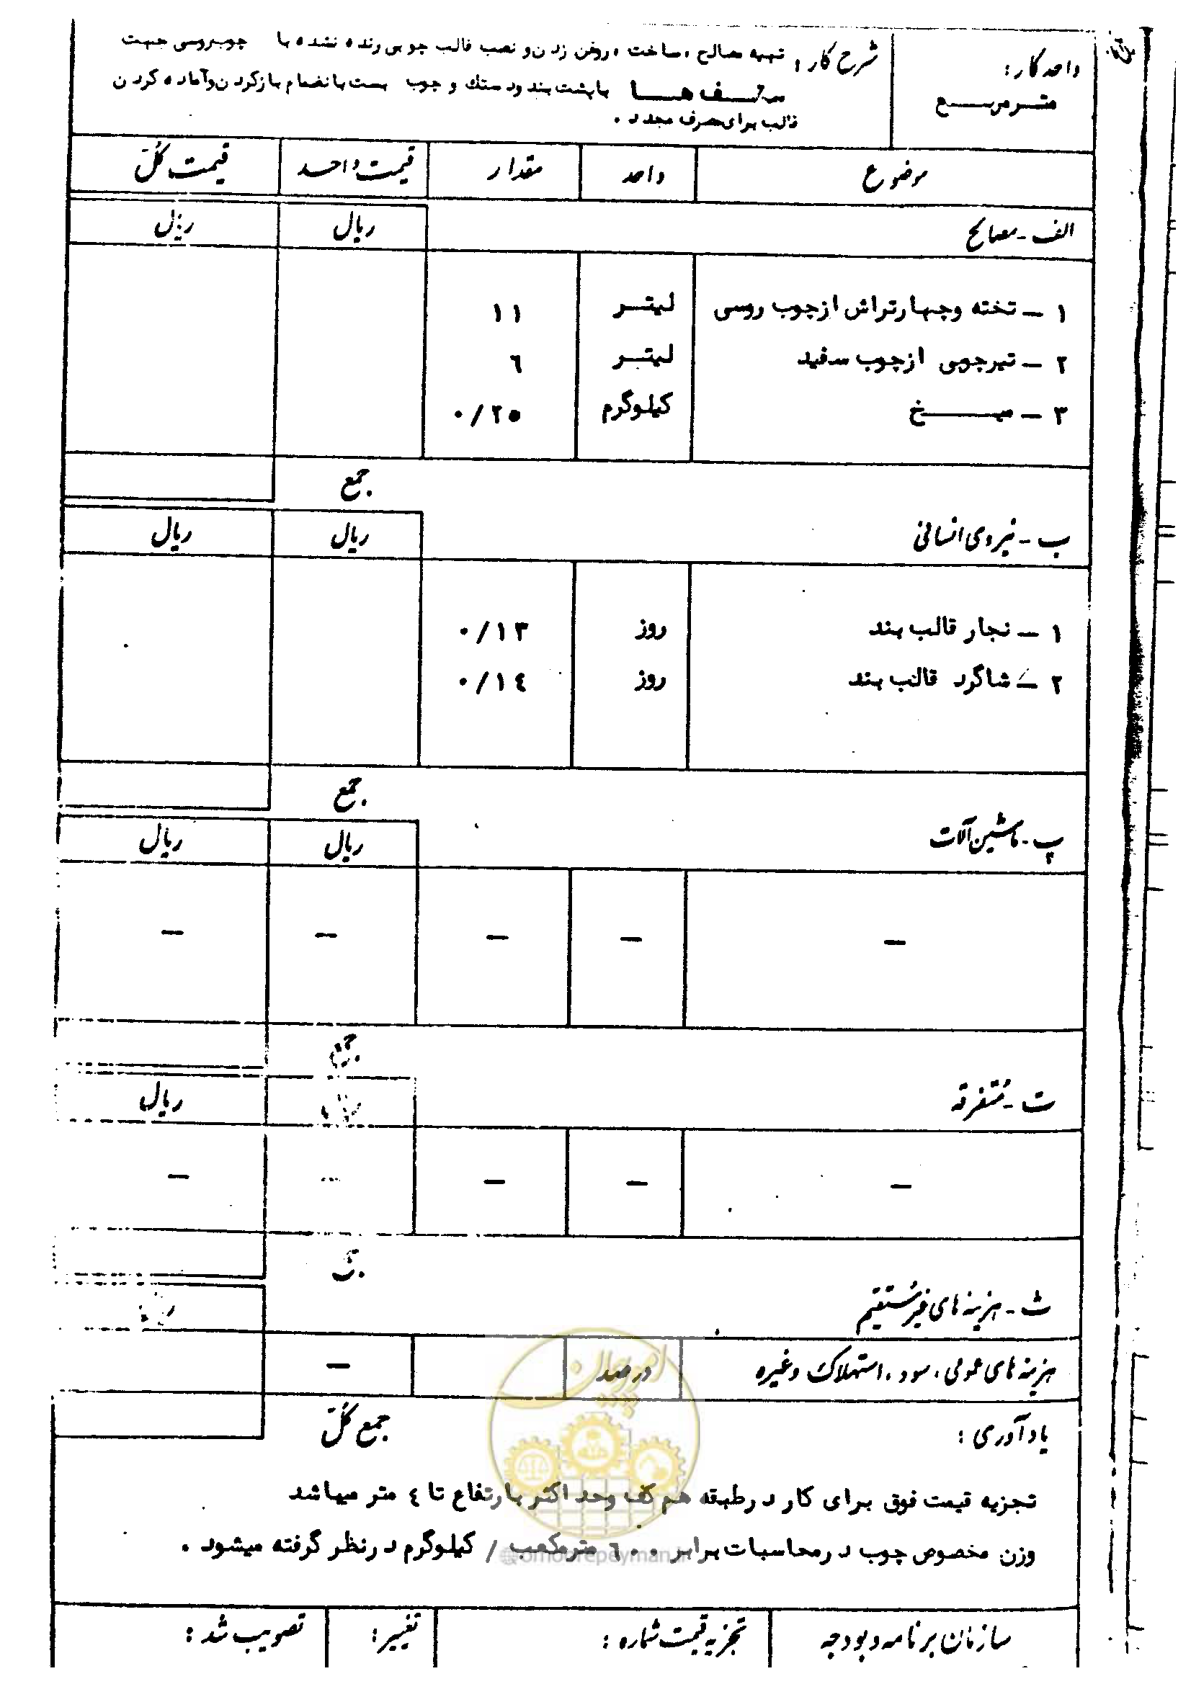 واحد کار :
متر مربع
شرح کار : تهیه مصالح ، ساخت ، روغن زدن و نصب قالب چوبی رنده نشده با چوب روسی جهت
سقف ها با پشت بند و دستک و چوب بست با انضمام باز کردن و آماده کردن
قالب برای مصرف مجدد .
موضوع واحد مقدار قیمت واحد قیمت کُل
الف - مصالح ریال ریال
۱ – تخته و چهار تراش از چوب روسی لیتر ۱۱
۲ – تیر چوبی از چوب سفید لیتر ٦
۳ – میخ کیلوگرم ۰/۲۵
جمع
ب - نیروی انسانی ریال ریال
۱ – نجار قالب بند روز ۰/۱۳
۲ – شاگرد قالب بند روز ۰/۱٤
جمع
پ - ماشین آلات ریال ریال
– – – – –
ت - مُتفرقه ریال
– – – –
ث - هزینه های غیر مُستقیم
هزینه های عمومی ، سود ، استهلاک و غیره درصد –
جمع کُل
یادآوری :
تجزیه قیمت فوق برای کار در طبقه هم کف وحد اکثر بارتفاع تا ٤ متر میباشد
وزن مخصوص چوب در محاسبات برابر ٦۰۰ مترمکعب / کیلوگرم در نظر گرفته میشود .
امور پیمان
@omoorepeyman.ir
سازمان برنامه و بودجه تجزیه قیمت شماره : تغییر : تصویب شد :